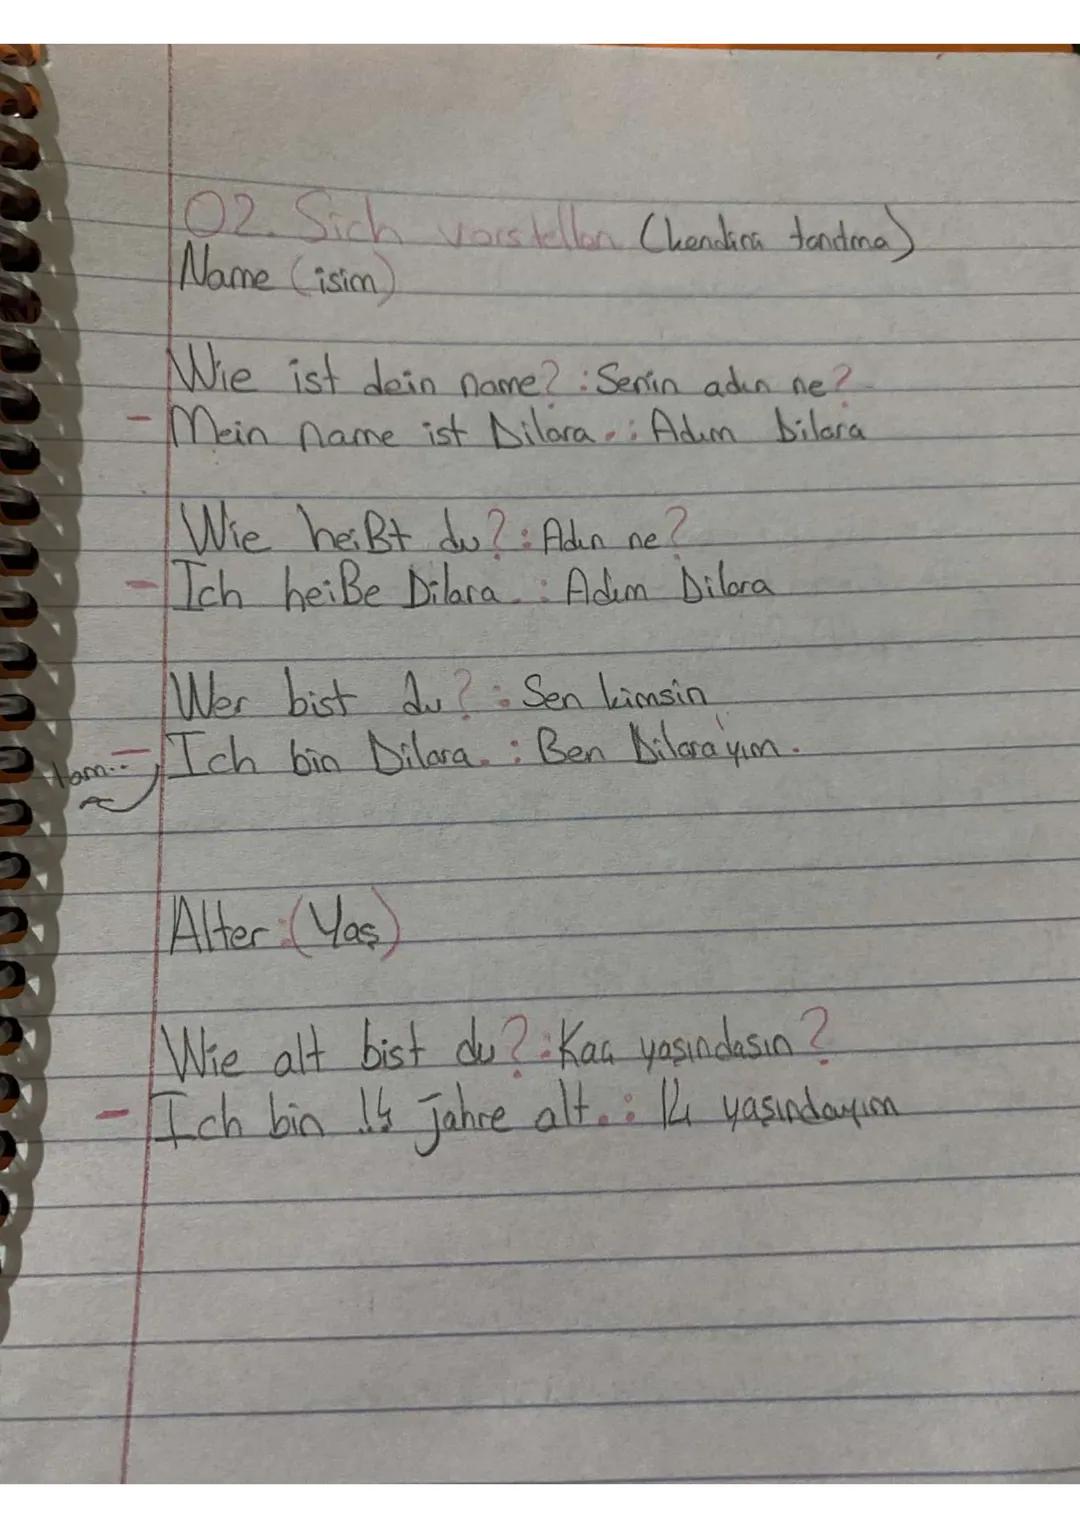 02. Sich vorstellen (kendini tanıtma)
Name (isim)
Wie ist dein name? : Senin adın ne?
- Mein name ist Dilara. : Adım Dilara
Wie heißt du? : Adın ne?
- Ich heiße Dilara. : Adım Dilara
Wer bist du? : Sen kimsin
- Ich bin Dilara. : Ben Dilara'yım.
Alter : (Yaş)
Wie alt bist du? : Kaç yaşındasın?
- Ich bin 14 jahre alt. : 14 yaşındayım